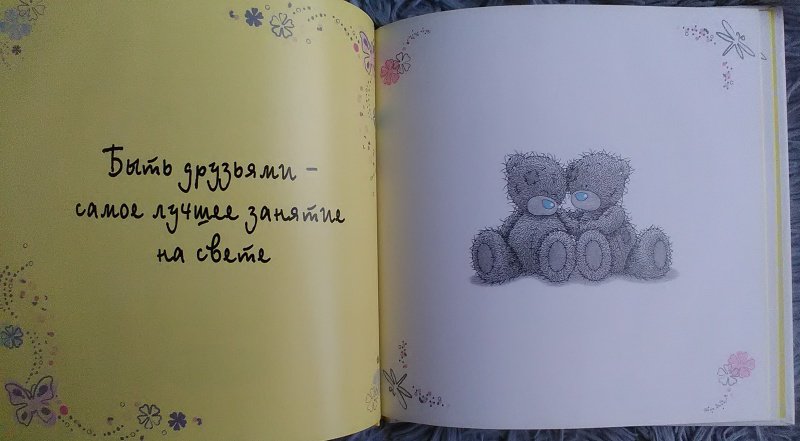 Быть друзьями –
самое лучшее занятие
на свете